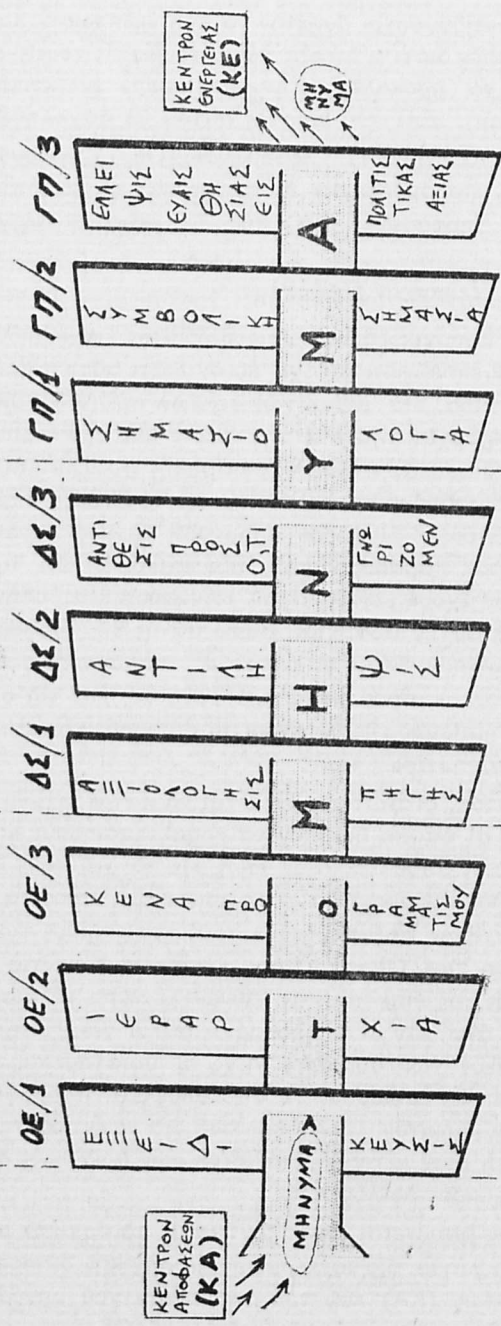 ΚΕΝΤΡΟΝ
ΑΠΟΦΑΣΕΩΝ
(ΚΑ)
ΜΗΝΥΜΑ
ΟΕ/1
ΕΞΕΙΔΙ
ΚΕΥΣΙΣ
ΟΕ/2
ΙΕΡΑΡ
ΧΙΑ
ΟΕ/3
ΚΕΝΑ
ΠΡΟ
ΓΡΑΜΜΑΤΙΣΜΟΥ
ΔΣ/1
ΑΞΙΟΛΟΓΗΣΙΣ
ΠΗΓΗΣ
ΔΣ/2
ΑΝΤΙΛΗ
ΨΙΣ
ΔΣ/3
ΑΝΤΙ
ΘΕ
ΣΙΣ
ΠΡΟΣ
Ο,ΤΙ
ΓΝΩ
ΡΙ
ΖΟ
ΜΕΝ
ΓΠ/1
ΣΗΜΑΣΙΟ
ΛΟΓΙΑ
ΓΠ/2
ΣΥΜΒΟΛΙΚΗ
ΣΗΜΑΣΙΑ
ΓΠ/3
ΕΛΛΕΙ
ΨΙΣ
ΕΥΑΙΣ
ΘΗ
ΣΙΑΣ
ΕΙΣ
ΠΟΛΙΤΙΣ
ΤΙΚΑΣ
ΑΞΙΑΣ
ΤΟ ΜΗΝΥΜΑ
ΚΕΝΤΡΟΝ
ΕΝΕΡΓΕΙΑΣ
(ΚΕ)
ΜΗ
ΝΥ
ΜΑ